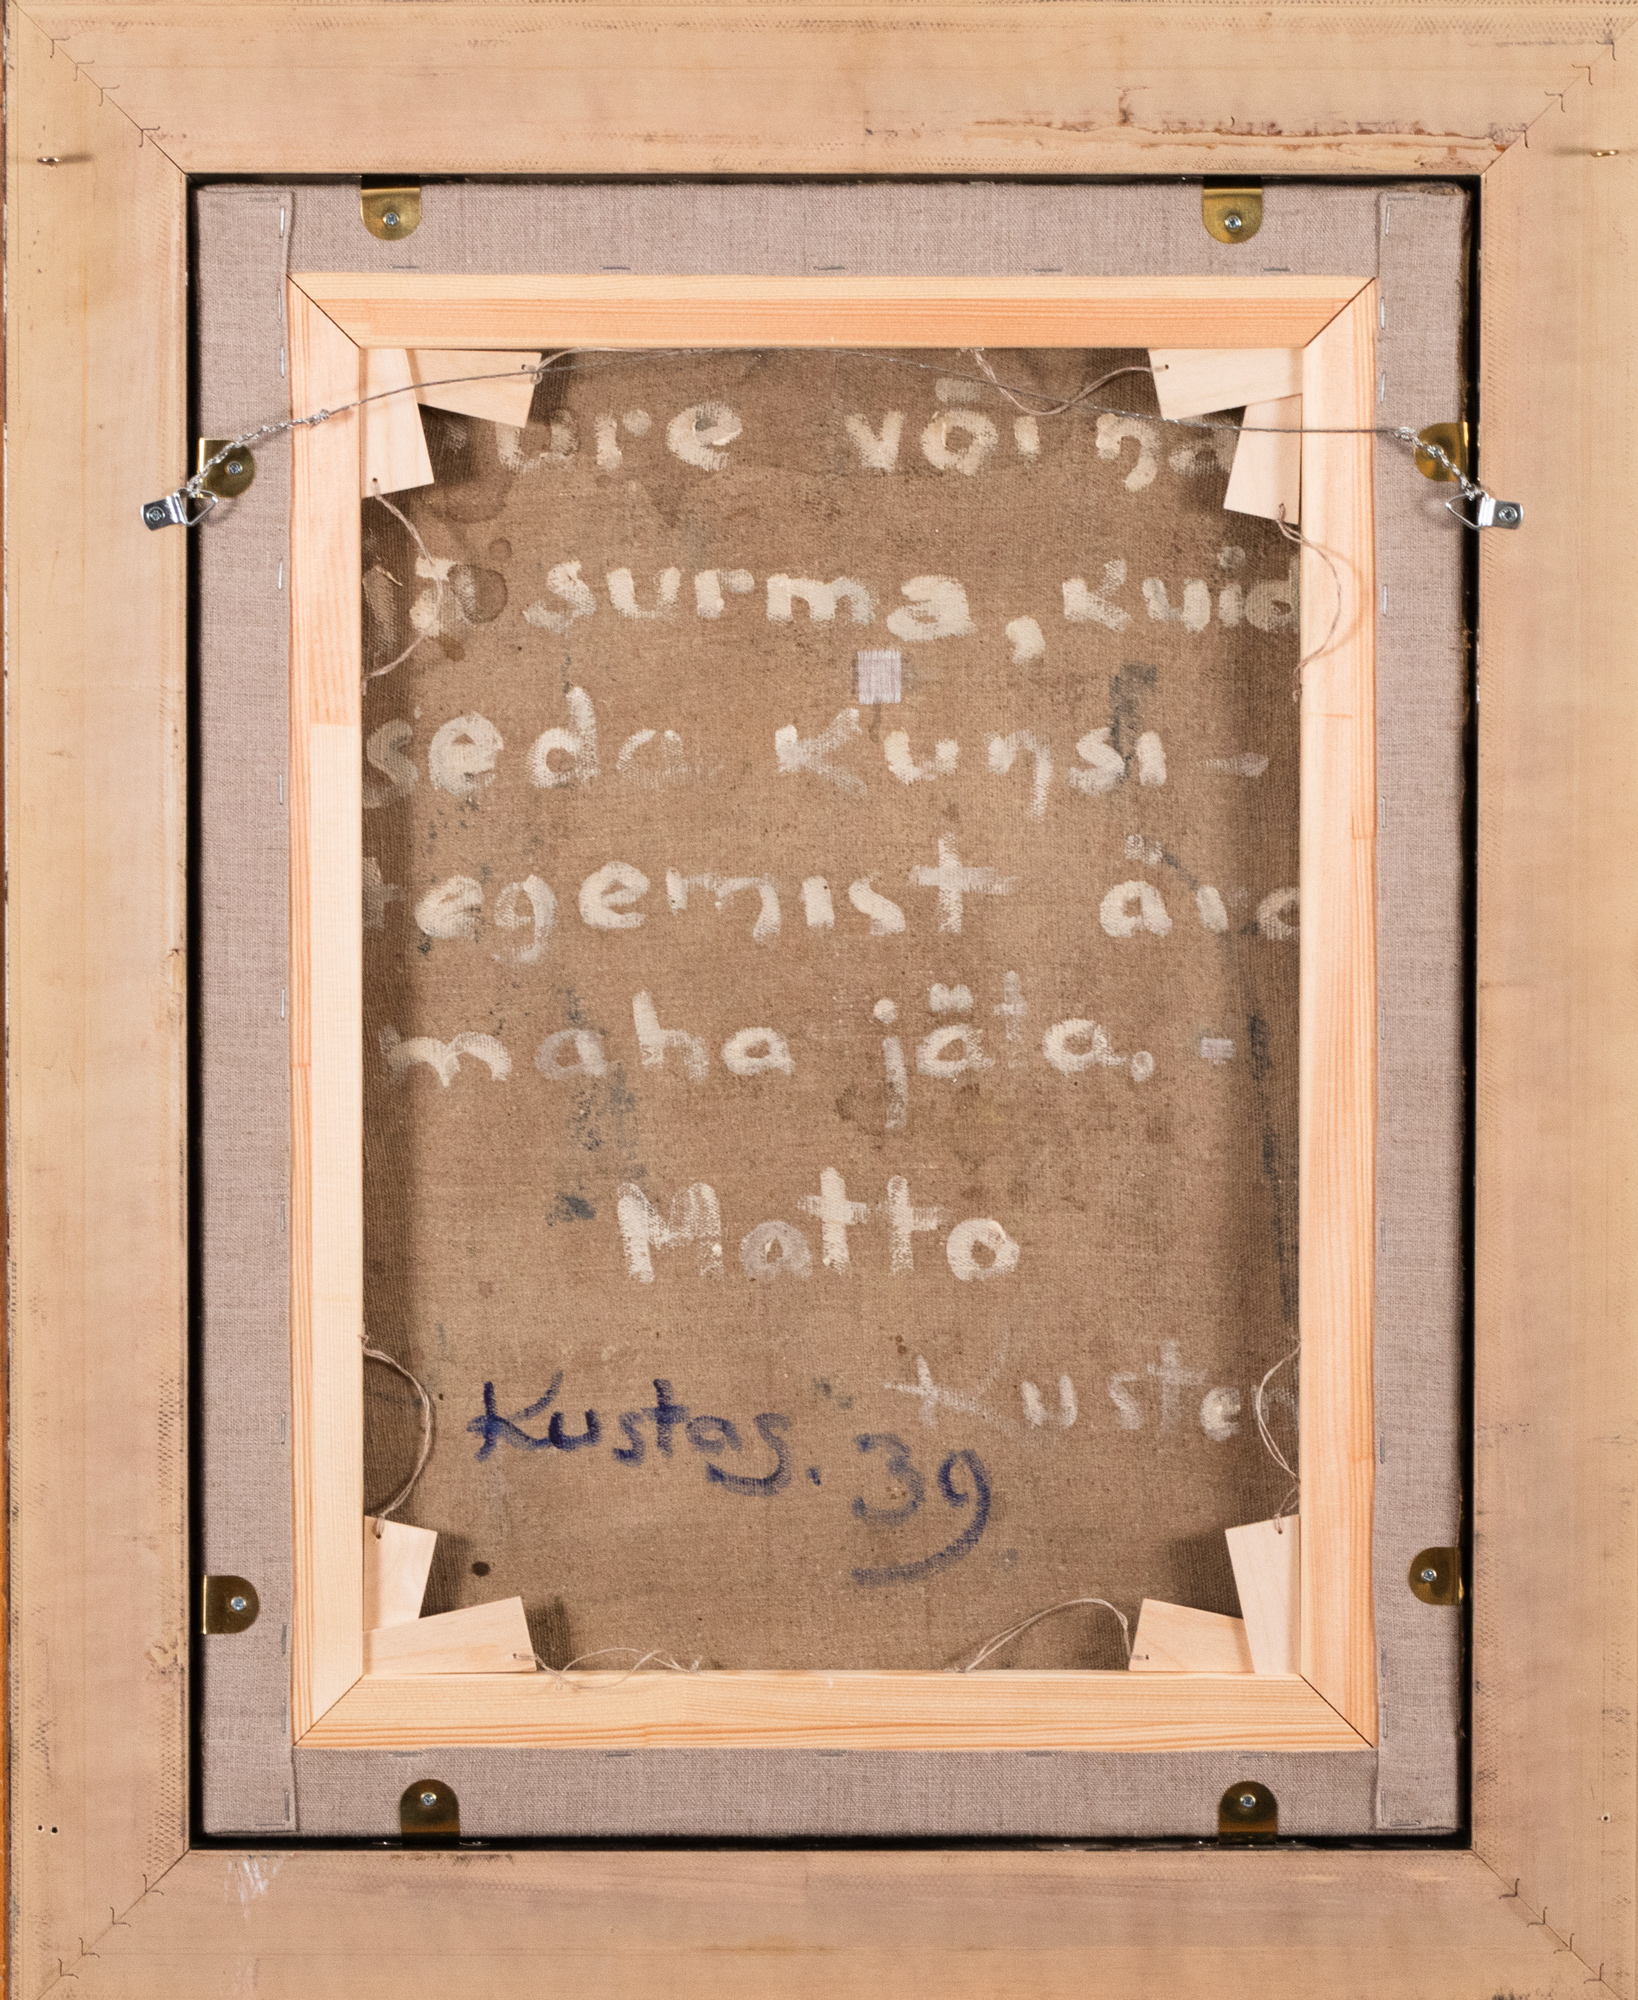 või
surma, kuid
seda kunsi -
tegemist ära
maha jäta. -
Matto
Kuste
Kustas. 39